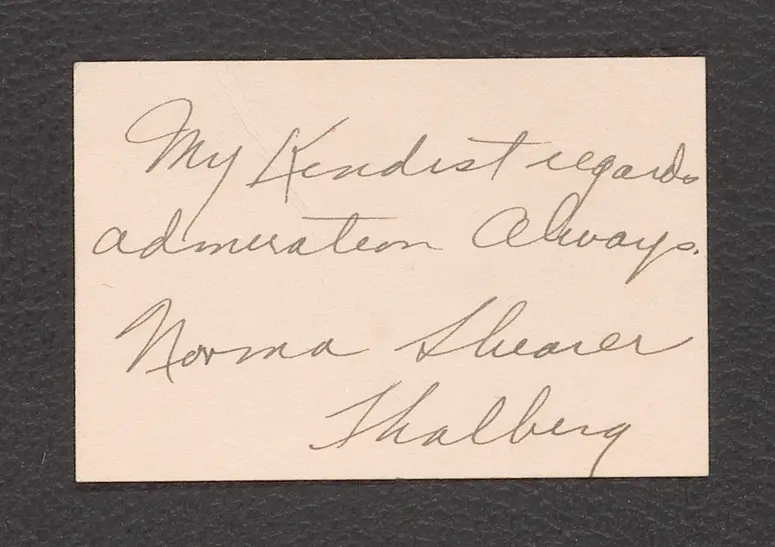 My Kindest regards
admiration Always.
Norma Shearer
Thalberg